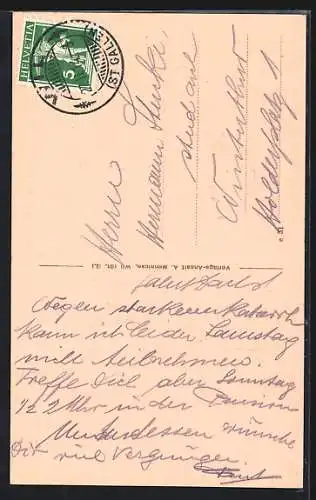 HELVETIA
5
WIL
(ST. GALLEN)
Herrn
Hermann
stud. art.
Winterthur
1
Verlags-Anstalt A. Wil (St. G.)
Wegen starkem Katarrh
kann ich leider Samstag
nicht teilnehmen.
Treffe Dich aber Sonntag
½ 2 Uhr in der Pension
Unterdessen wünsche
Dir viel Vergnügen.